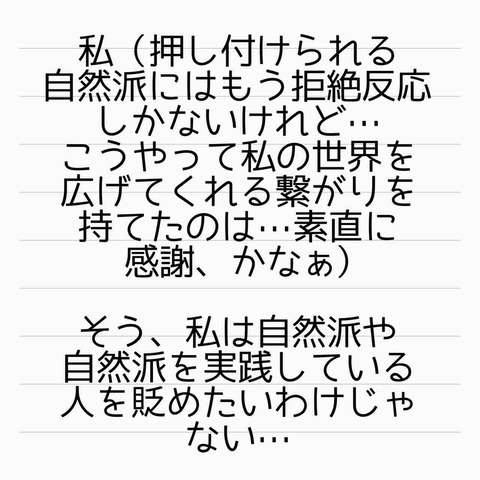 私（押し付けられる
自然派にはもう拒絶反応
しかないけれど…
こうやって私の世界を
広げてくれる繋がりを
持てたのは…素直に
感謝、かなぁ）
そう、私は自然派や
自然派を実践している
人を貶めたいわけじゃ
ない…